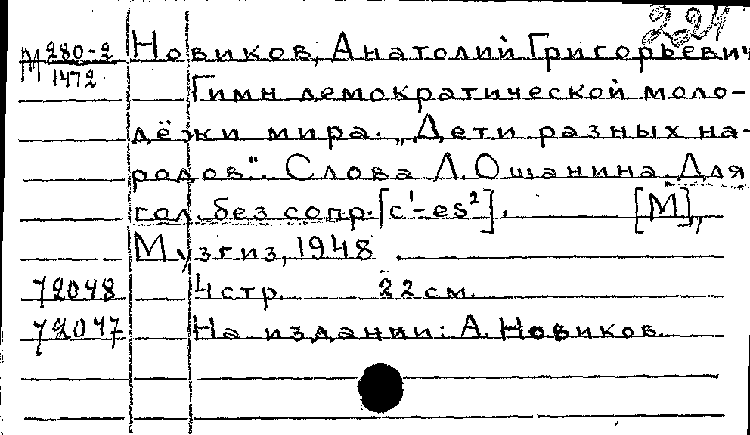 221
М 280-2 Новиков, Анатолий Григорьевич
1472
Гимн демократической моло-
дёжи мира. „Дети разных на-
родов". Слова Л. Ошанина. Для
гол. без сопр. [c¹-es²]. [М],
Музгиз, 1948.
72048 4 стр. 22 см.
72047 На издании: А. Новиков.